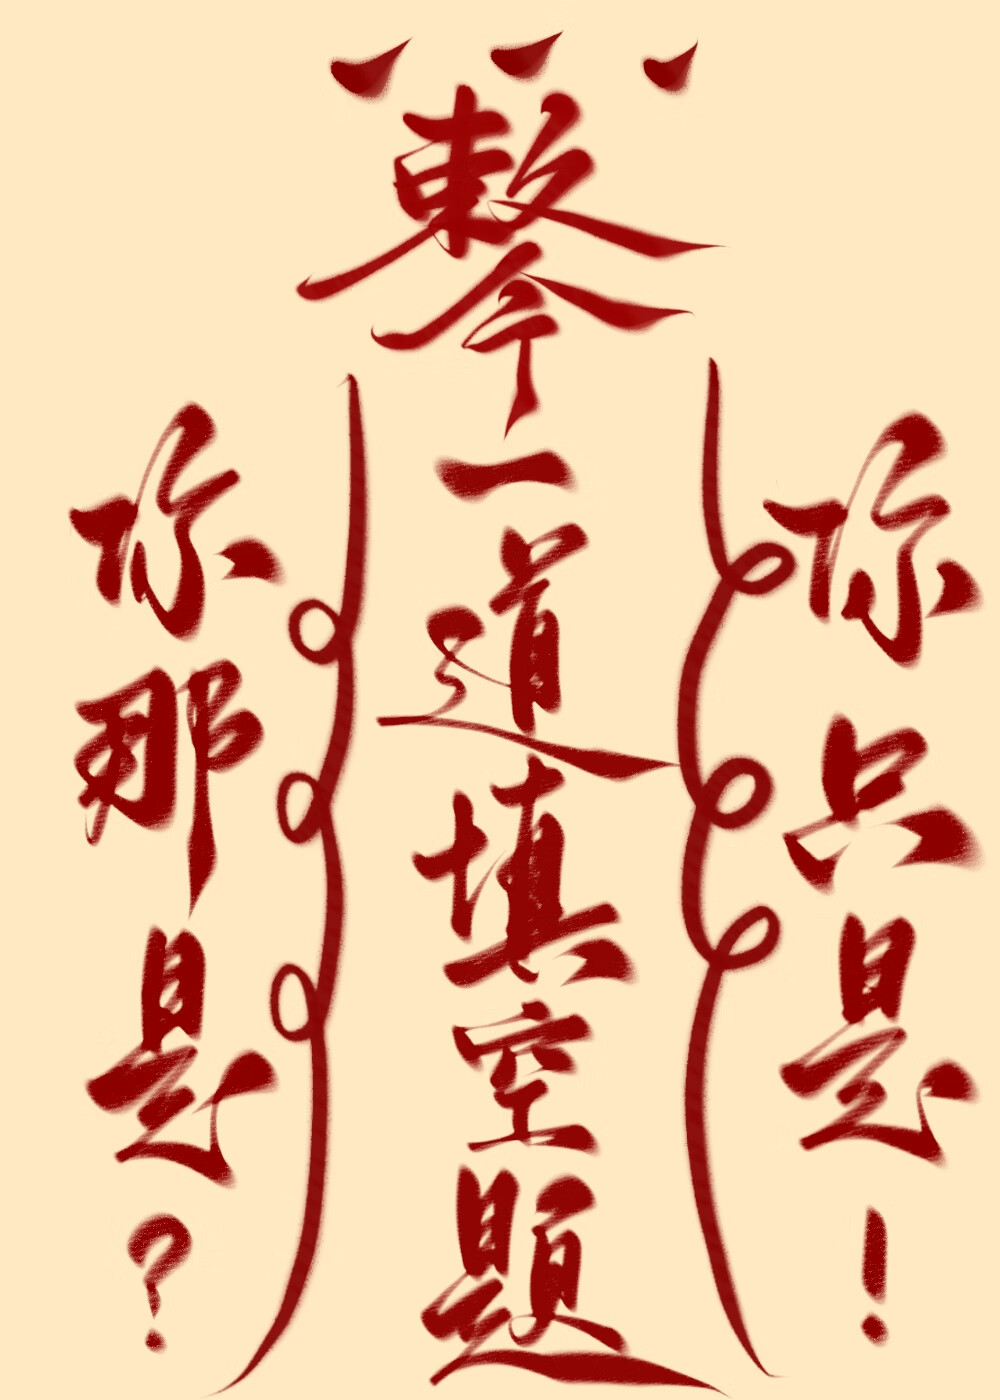 你只是!
敕令一道填空题
你那是?